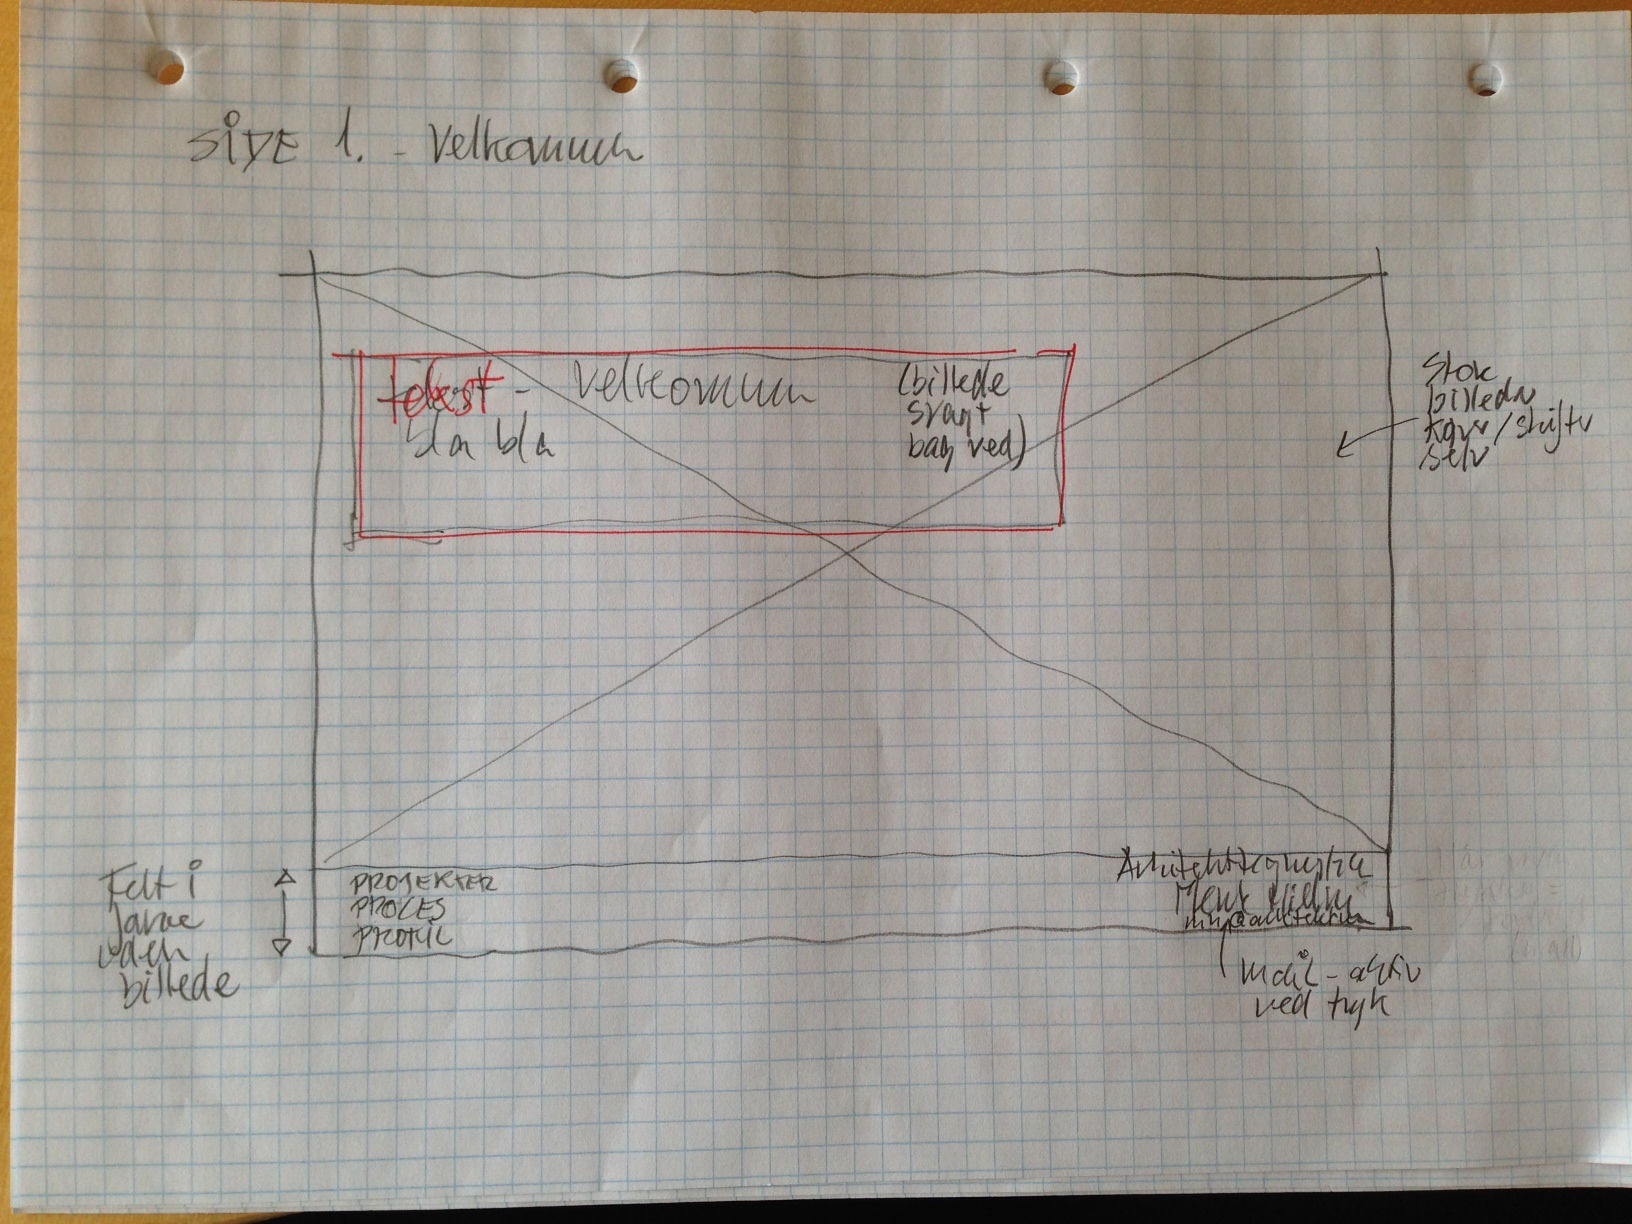 SIDE 1. - Velkommen
tekst - velkommen
bla bla
(billede
svagt
bag ved)
Stor
billede
kører / skifter
selv
Felt i
farve
uden
billede
PROJEKTER
PROCES
PROFIL
Arkitekt
mail - aktiv
ved tryk